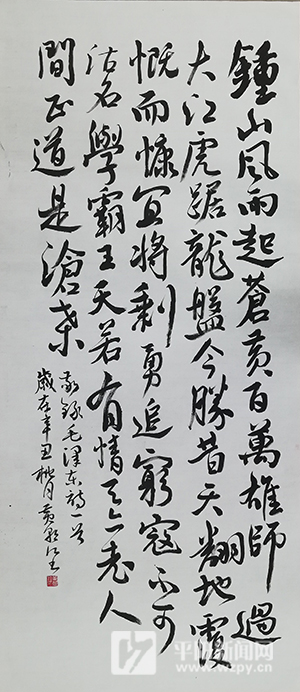 鍾山風雨起蒼黃百萬雄師過
大江虎踞龍盤今勝昔天翻地覆
慨而慷宜將剩勇追窮寇不可
沽名學霸王天若有情天亦老人
間正道是滄桑
敬錄毛澤東詩一首
歲在辛丑
平阳新闻网
www.wzpy.cn